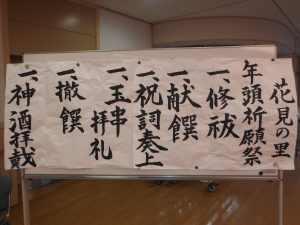 花見の里
年頭祈願祭
一、修祓
一、献饌
一、祝詞奏上
一、玉串拝礼
一、撤饌
一、神酒拝戴